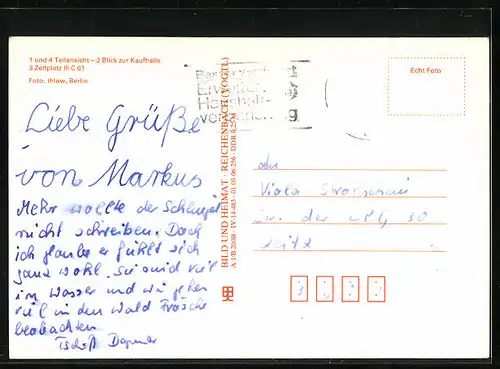 1 und 4 Teilansicht – 2 Blick zur Kaufhalle
3 Zeltplatz III C 61
Foto: Ihlow, Berlin
Liebe Grüße
von Markus
Mehr wollte der Schlingel
nicht schreiben. Doch
ich glaube er fühlt sich
ganz wohl. Sie sind viel
im Wasser und wir gehen
viel in den Wald Frösche
beobachten
Tschüß Dagmar
Erweiterte
Haushalt-
versicherung
BILD UND HEIMAT · REICHENBACH (VOGTL)
A 1/B 20/88 · IV-14-483 · 01 03 06 256 · DDR
Echt Foto
an
Viola
Str. der
30